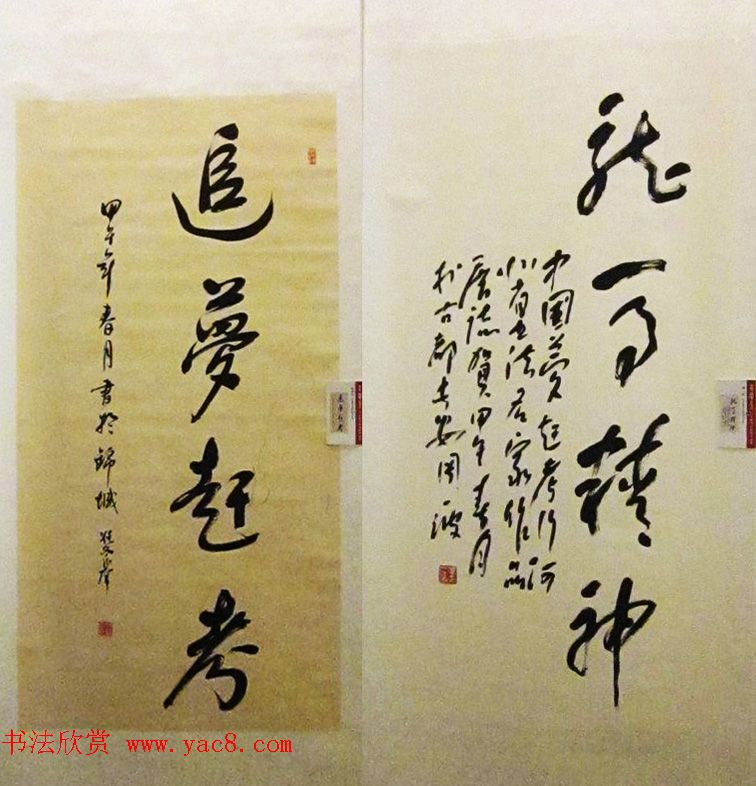 追夢赶考
甲午年春月書於錦城
龍馬精神
中國夢赶考行河
北省书法名家作品
展誌賀甲午春月
於古都长安周一波
书法欣赏 www.yac8.com